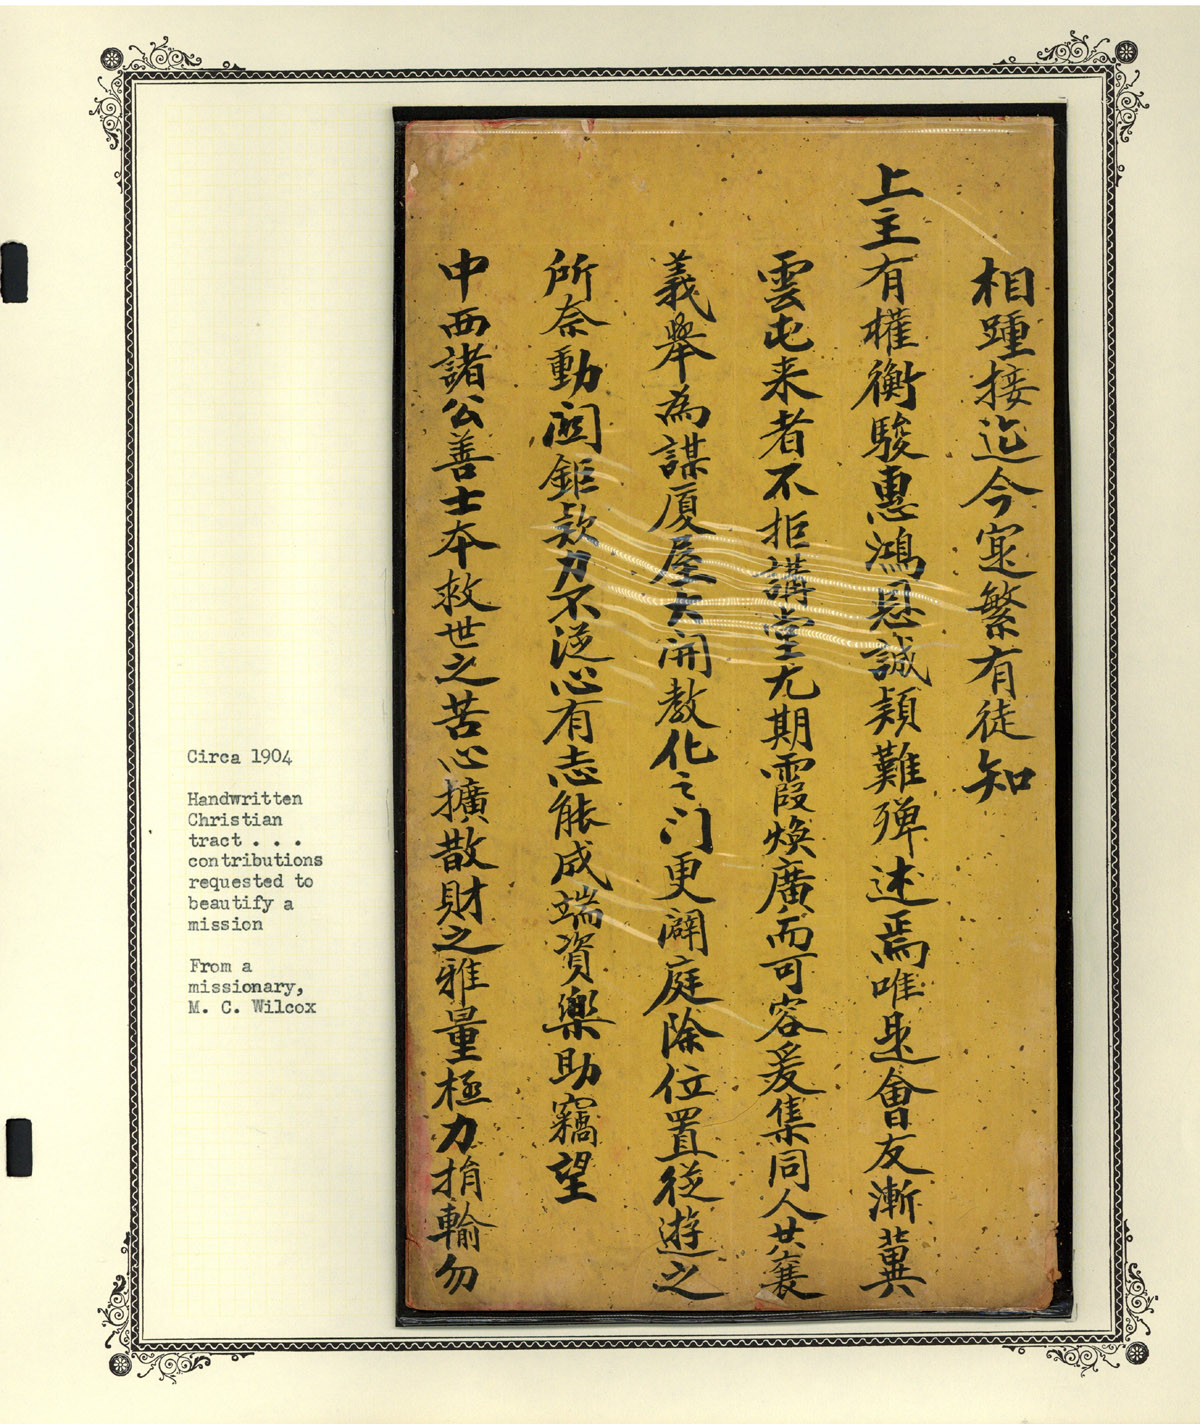 相踵接迄今寔繁有徒知
上主有權衡駿惠鴻恩誠類難殫述焉唯是會友漸冀
雲屯来者不拒講堂尤期霞煥廣而可容爰集同人共襄
義舉為謀廈屋大開教化之门更闢庭除位置從遊之
所奈動関鉅款力不逆心有志能成端資樂助竊望
中西諸公善士本救世之苦心擴散財之雅量極力捐輸勿
Circa 1904
Handwritten
Christian
tract . . .
contributions
requested to
beautify a
mission
From a
missionary,
M. C. Wilcox